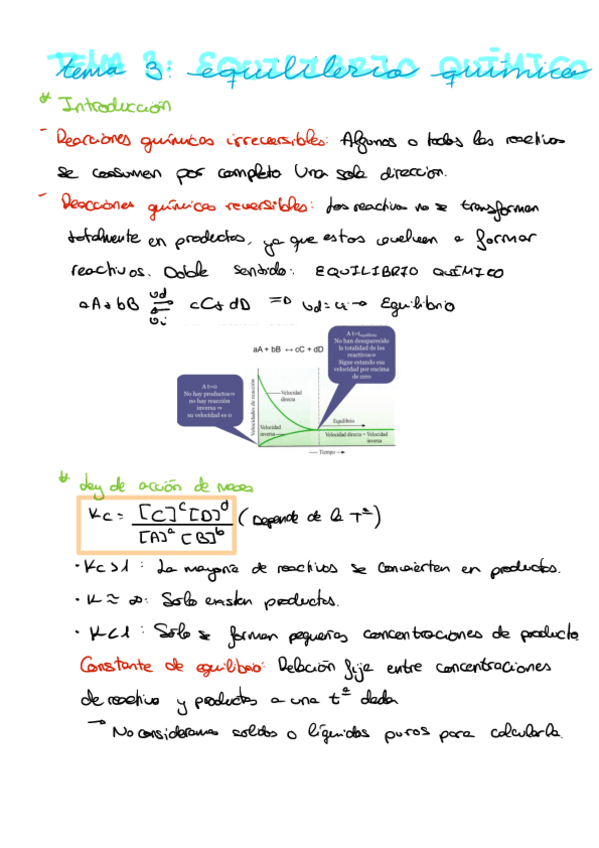 TEMA 3: EQUILIBRIO QUÍMICO
tema 3: equilibrio químico
* Introducción
- Reacciones químicas irreversibles: Algunos o todos los reactivos
se consumen por completo Una sola dirección.
- Reacciones químicas reversibles: Los reactivos no se transforman
totalmente en productos, ya que estos vuelven a formar
reactivos. Doble sentido: EQUILIBRIO QUÍMICO
aA + bB ⇌ cC + dD ⇒ vd = vi → Equilibrio
vd
vi
A t=t equilibrio
No han desaparecido
la totalidad de los
reactivos⇒
Sigue estando esa
velocidad por encima
de cero
aA + bB ↔ cC + dD
A t=0
No hay productos⇒
no hay reacción
inversa ⇒
su velocidad es 0
Velocidades de reacción
Velocidad
directa
Equilibrio
Velocidad
inversa
Velocidad directa = Velocidad
inversa
Tiempo
* Ley de acción de masas
Kc = [C]^c [D]^d / [A]^a [B]^b (Depende de la Tª)
· Kc > 1: La mayoría de reactivos se convierten en productos.
· K ≈ ∞: Solo existen productos.
· K < 1: Solo se forman pequeñas concentraciones de producto.
Constante de equilibrio: Relación fija entre concentraciones
de reactivo y productos a una tª dada
→ No consideramos solidos o líquidos puros para calcularla.